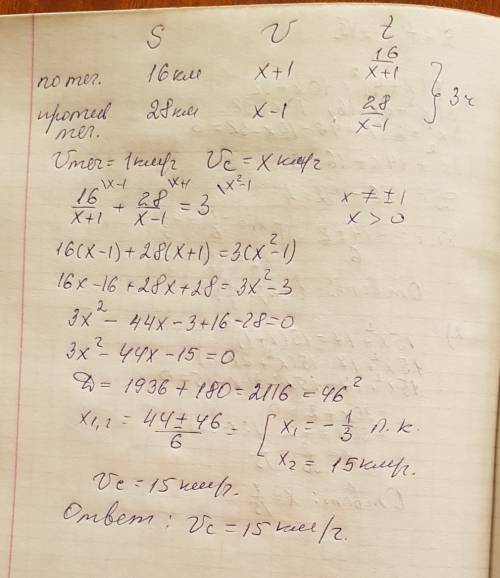 S V t
по теч. 16 км x+1 16/(x+1)
против теч. 28км x-1 28/(x-1) } 3 ч
Vтеч = 1км/ч Vc = x км/ч
16/(x+1) \x-1 + 28/(x-1) \x+1 = 3 \x²-1 x ≠ ±1
x > 0
16(x-1) + 28(x+1) = 3(x²-1)
16x - 16 + 28x + 28 = 3x² - 3
3x² - 44x - 3 + 16 - 28 = 0
3x² - 44x - 15 = 0
D = 1936 + 180 = 2116 = 46²
x1,2 = (44 ± 46)/6 = [ x₁ = -1/3 п.к.
x₂ = 15км/ч.
Vc = 15 км/ч.
Ответ: Vc = 15 км/ч.